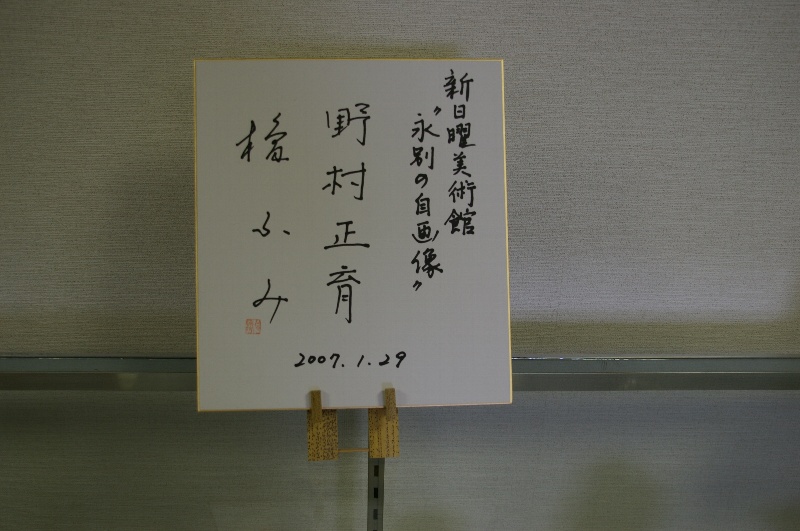 新日曜美術館
"永別の自画像"
野村正育
檀ふみ
2007.1.29